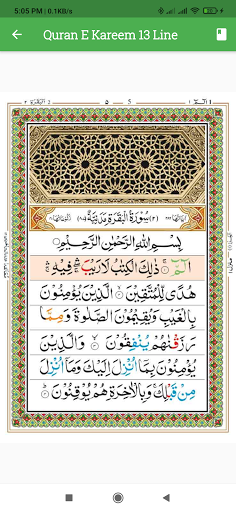 5:05 PM | 0.1KB/s
Quran E Kareem 13 Line
(٢) سُوْرَةُ الْبَقَرَةِ مَدَنِيَّةٌ (٨٧)
بِسْمِ اللهِ الرَّحْمٰنِ الرَّحِيْمِ
الٓمّٓ ۚ ذٰلِكَ الْكِتٰبُ لَا رَيْبَ ۛ فِيْهِ ۛ
هُدًى لِّلْمُتَّقِيْنَ ۙ الَّذِيْنَ يُؤْمِنُوْنَ
بِالْغَيْبِ وَيُقِيْمُوْنَ الصَّلٰوةَ وَمِمَّا
رَزَقْنٰهُمْ يُنْفِقُوْنَ ۙ وَالَّذِيْنَ
يُؤْمِنُوْنَ بِمَاۤ اُنْزِلَ اِلَيْكَ وَمَاۤ اُنْزِلَ
مِنْ قَبْلِكَ ۚ وَبِالْاٰخِرَةِ هُمْ يُوْقِنُوْنَ